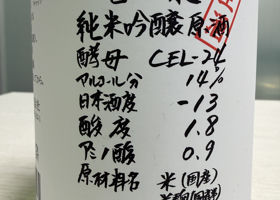 純米吟醸原酒
酵母 CEL-24
アルコール分 14%
日本酒度 -13
酸度 1.8
アミノ酸 0.9
原材料名 米(国産)